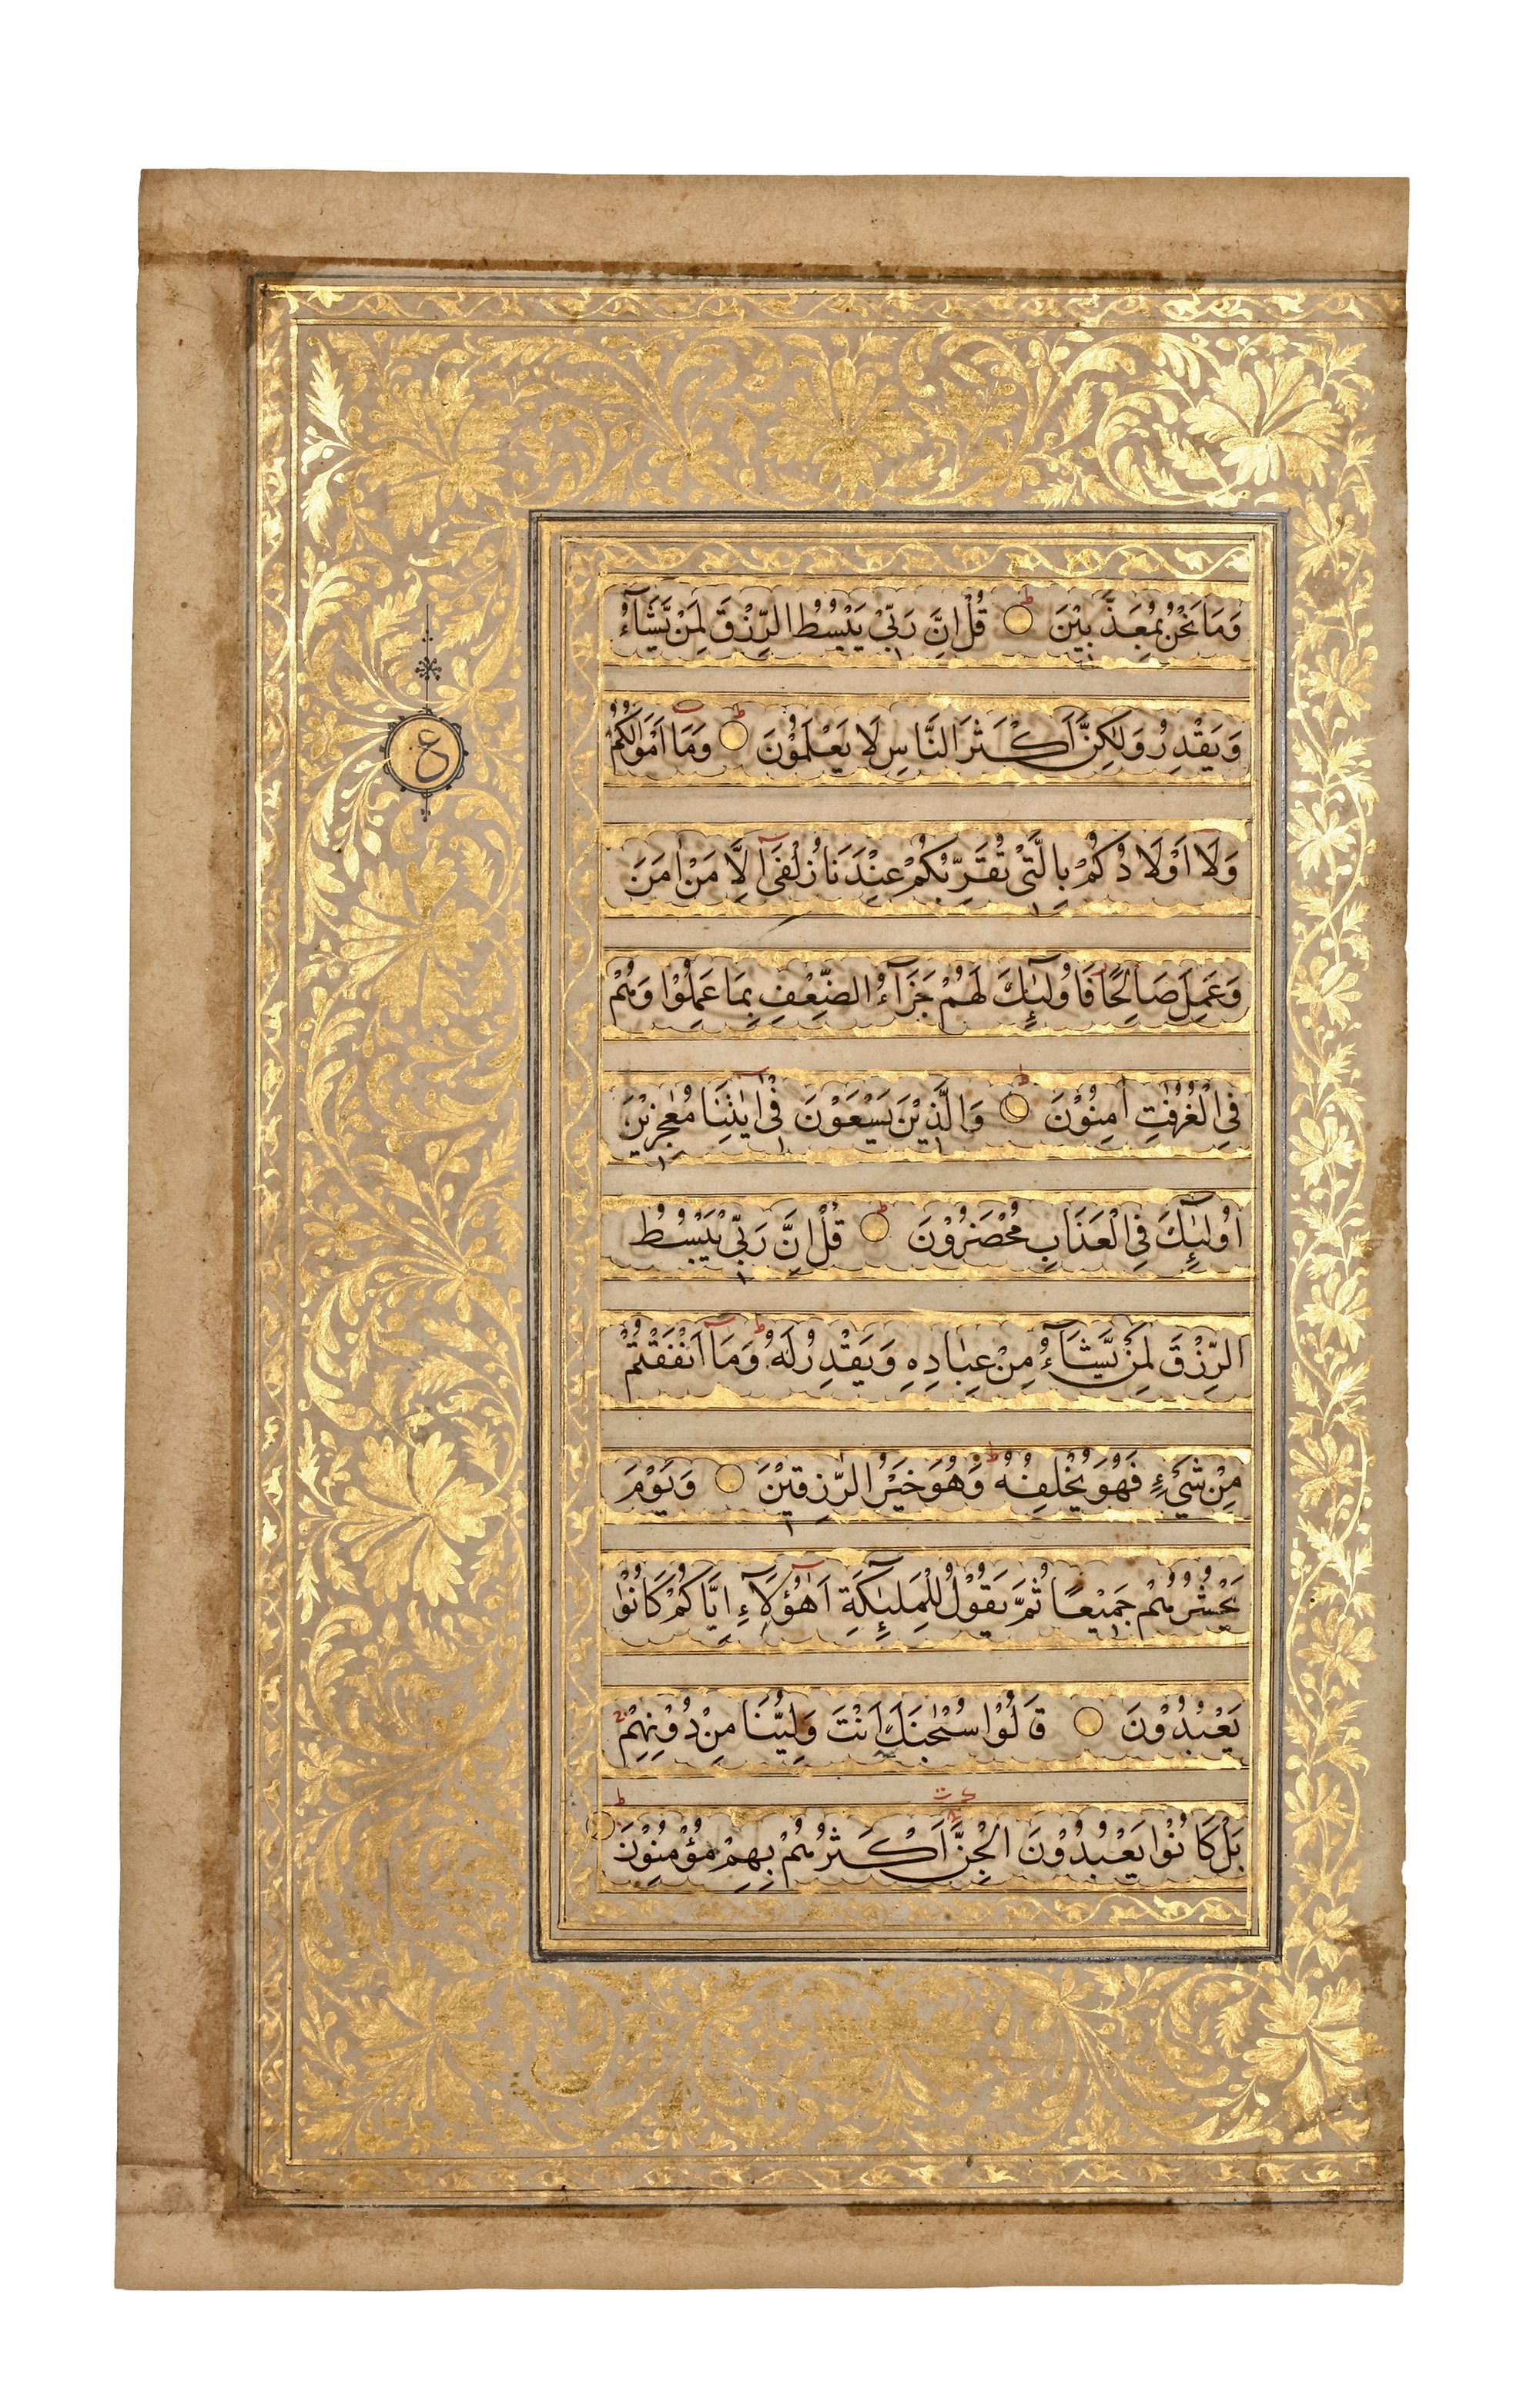 وَمَا نَحْنُ بِمُعَذَّبِيْنَ ۝ قُلْ اِنَّ رَبِّيْ يَبْسُطُ الرِّزْقَ لِمَنْ يَّشَآءُ
ع
وَيَقْدِرُ وَلٰكِنَّ اَكْثَرَ النَّاسِ لَا يَعْلَمُوْنَ ۝ وَمَآ اَمْوَالُكُمْ
وَلَا اَوْلَادُكُمْ بِالَّتِيْ تُقَرِّبُكُمْ عِنْدَنَا زُلْفٰىٓ اِلَّا مَنْ اٰمَنَ
وَعَمِلَ صَالِحًا فَاُولٰٓئِكَ لَهُمْ جَزَآءُ الضِّعْفِ بِمَا عَمِلُوْا وَهُمْ
فِي الْغُرُفٰتِ اٰمِنُوْنَ ۝ وَالَّذِيْنَ يَسْعَوْنَ فِيْٓ اٰيٰتِنَا مُعٰجِزِيْنَ
اُولٰٓئِكَ فِي الْعَذَابِ مُحْضَرُوْنَ ۝ قُلْ اِنَّ رَبِّيْ يَبْسُطُ
الرِّزْقَ لِمَنْ يَّشَآءُ مِنْ عِبَادِهٖ وَيَقْدِرُ لَهٗ ؕ وَمَآ اَنْفَقْتُمْ
مِنْ شَيْءٍ فَهُوَ يُخْلِفُهٗ ؕ وَهُوَ خَيْرُ الرّٰزِقِيْنَ ۝ وَيَوْمَ
يَحْشُرُهُمْ جَمِيْعًا ثُمَّ يَقُوْلُ لِلْمَلٰٓئِكَةِ اَهٰٓؤُلَآءِ اِيَّاكُمْ كَانُوْا
يَعْبُدُوْنَ ۝ قَالُوْا سُبْحٰنَكَ اَنْتَ وَلِيُّنَا مِنْ دُوْنِهِمْ
بَلْ كَانُوْا يَعْبُدُوْنَ الْجِنَّ اَكْثَرُهُمْ بِهِمْ مُؤْمِنُوْنَ ۝